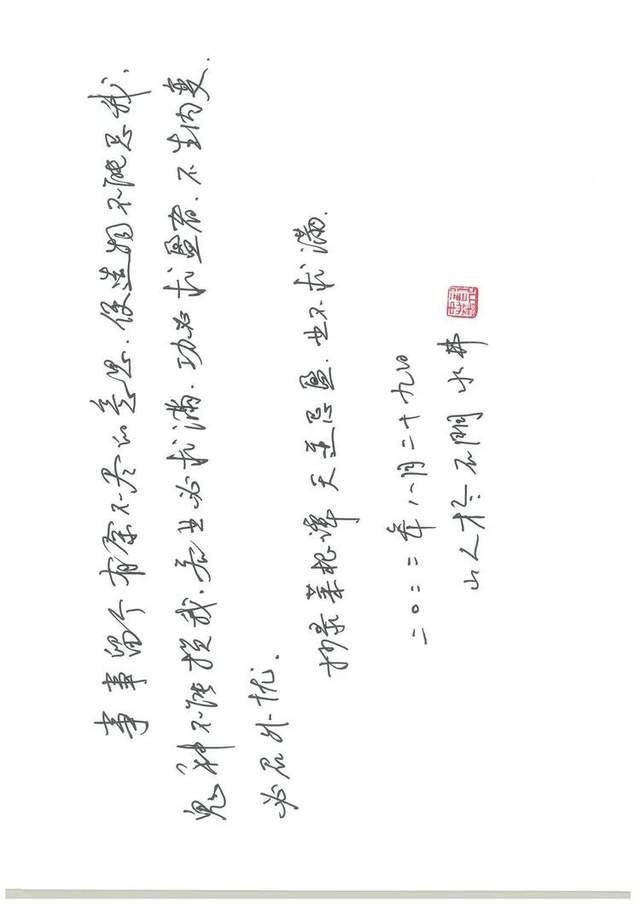 事事留个有余不尽的意思，便造物不能忌我，
鬼神不能损我。若业必求满，功必求盈者，不生内变，
必召外忧。
抄录菜根谭 天道忌盈，业不求满。
二〇二二年八月二十九日
山人